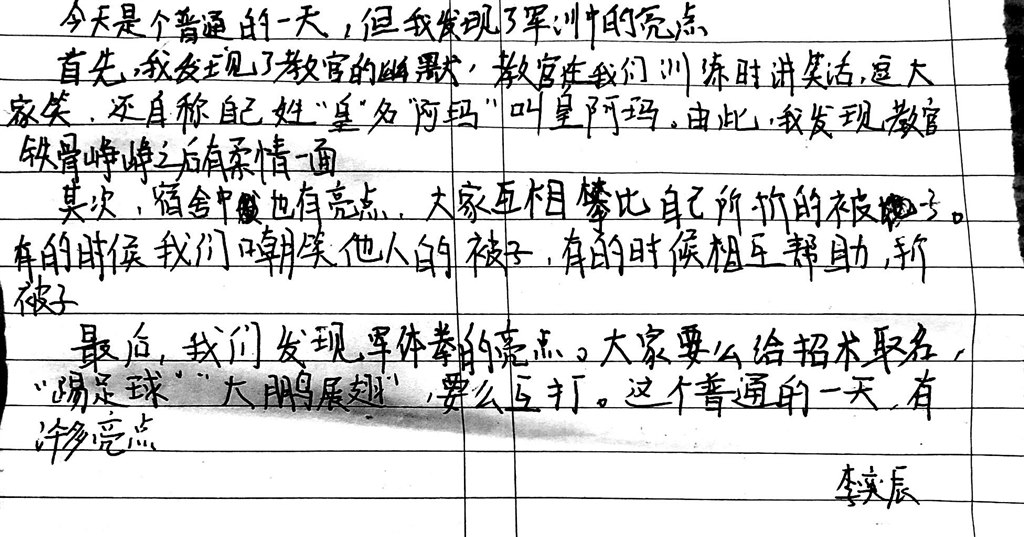 今天是个普通的一天，但我发现了军训中的亮点
首先，我发现了教官的幽默，教官在我们训练时讲笑话，逗大
家笑，还自称自己姓“皇”名“阿玛”叫皇阿玛。由此，我发现教官
铁骨峥峥之后有柔情一面
其次，宿舍中也有亮点，大家互相攀比自己所折的被子。
有的时候我们嘲笑他人的被子，有的时候相互帮助，折
被子
最后，我们发现军体拳的亮点。大家要么给招术取名，
“踢足球”“大鹏展翅”，要么互打。这个普通的一天，有
许多亮点
李奕辰